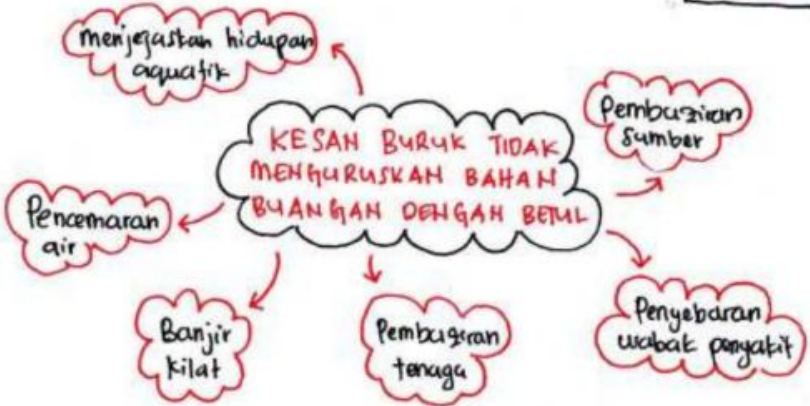 menjejaskan hidupan
aquatik
KESAN BURUK TIDAK
MENGURUSKAN BAHAN
BUANGAN DENGAN BETUL
Pembaziran
sumber
Pencemaran
air
Banjir
kilat
Pembaziran
tenaga
Penyebaran
wabak penyakit